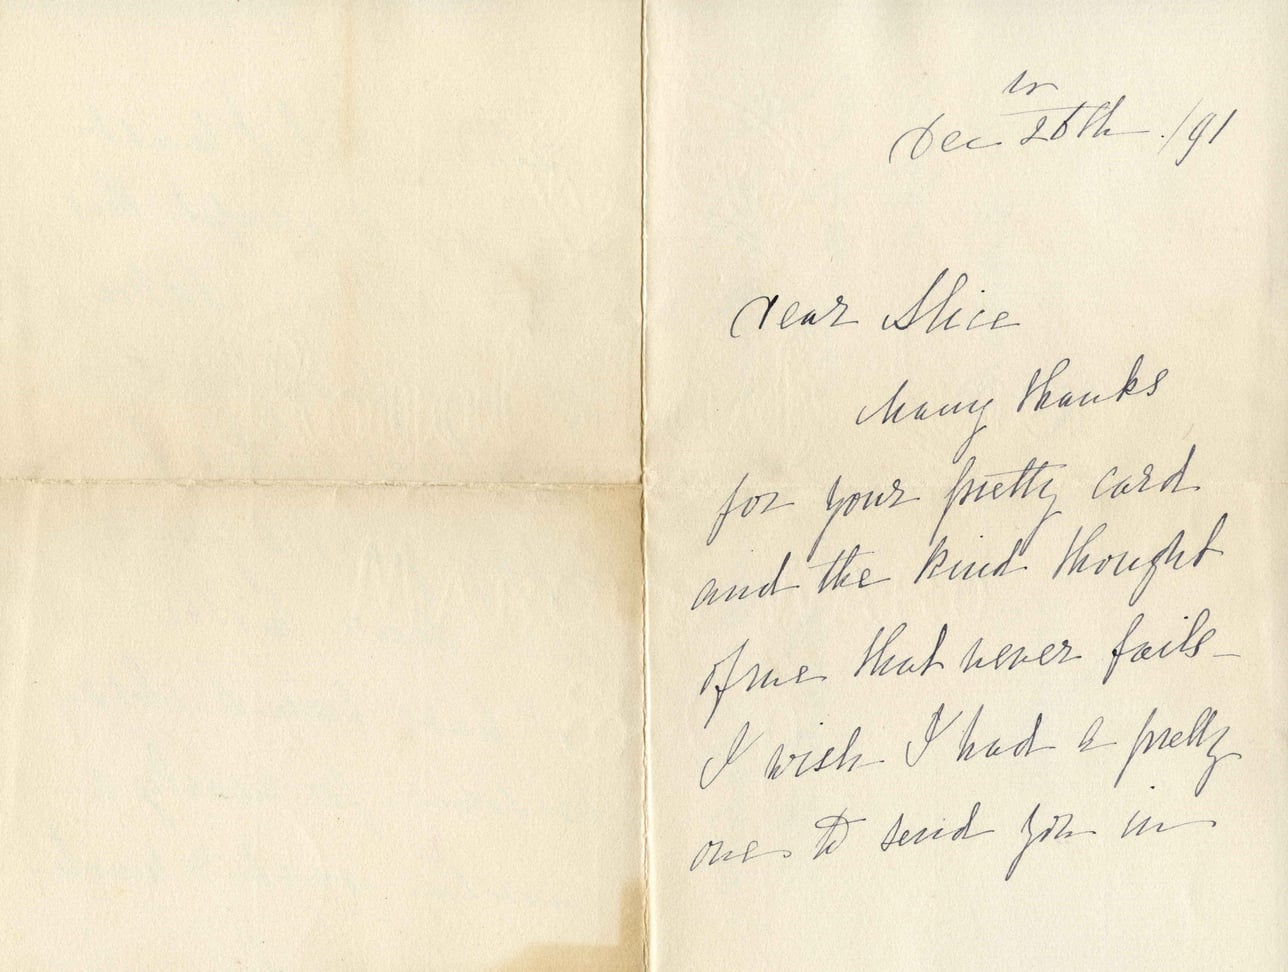 Decr 26th /91
Dear Alice
Many thanks
for your pretty card
and the kind thought
of me that never fails –
I wish I had a pretty
one to send you in